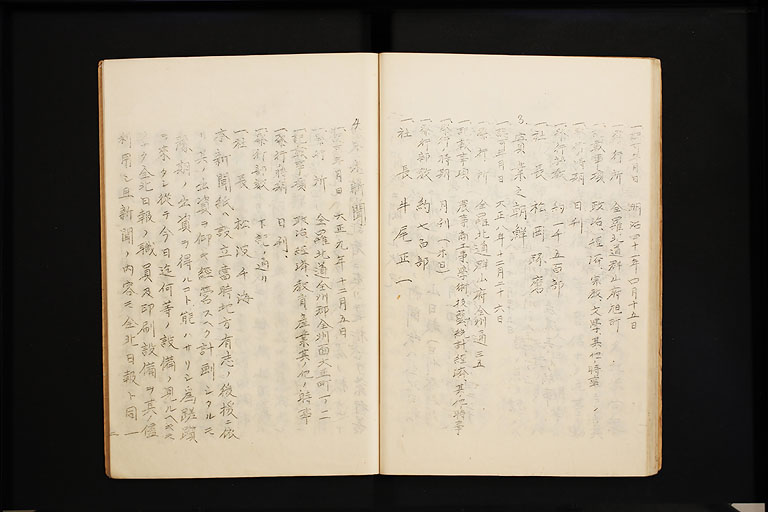 一認可年月日 明治四十一年四月十五日
一発行所 全羅北道群山府旭町
一記載事項 政治、経済、宗教、文学、其他時事
一発行時期 日刊
一発行部数 約千五百部
一社長 松岡琢磨
3. 實業之朝鮮
一認可年月日 大正八年十二月二十六日
一発行所 全羅北道群山府全州通三五
一記載事項 農業商工業学術技藝統計経済、其他時事
一発行時期 月刊(一ホ日)
一発行部数 約七百部
一社長 牛尾正一
4. 新聞
一認可年月日 大正元年十二月五日
一発行所 全羅北道全州郡全州面大正町
一記載事項 政治経済、教育、産業其ノ他ノ時事
一発行時期 日刊、
一発行部数 下記ノ通リ
一社長 松波千海
本新聞紙ハ設立当時地方有志ノ後援ニ依
リ其ノ出資ヲ仰キ経営スヘク計画シタルモ
豫期ノ出資ヲ得ルコト能ハサリシ為蹉躓
ヲ来タシ従テ今日迄何等設備ノ見ルヘキモ
ノナク全北日報ノ職員及印刷設備ヲ其ノ儘
利用シ且新聞ノ内容モ全北日報ト同一